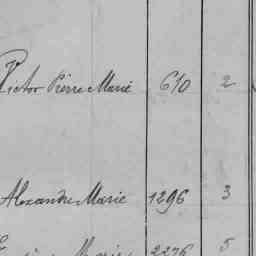 Victor Pierre Marie 610 2
Alexandre Marie 1296 3
Marie 2276 5